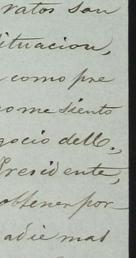 ratos son
ituacion,
como pre
come siento
gocio dello,
Presidente,
obtener por
adie mas